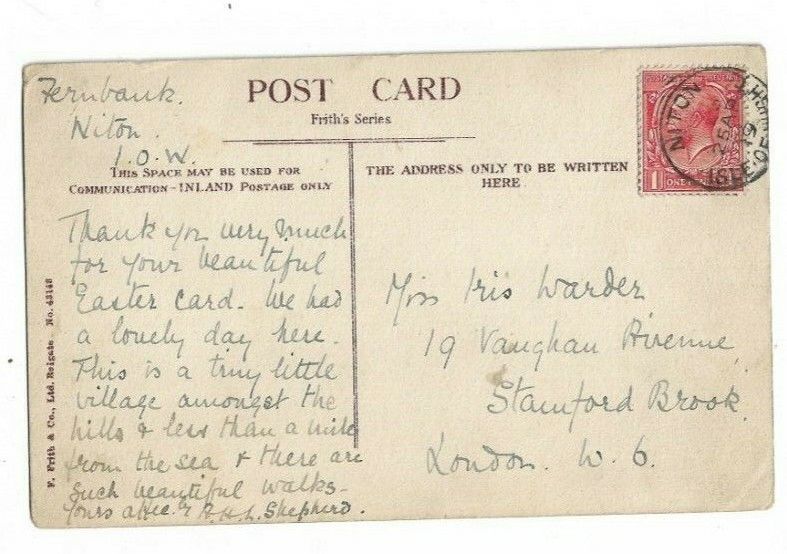 Fernbank.
Niton.
I.O.W.
POST CARD
Frith's Series
THIS SPACE MAY BE USED FOR
COMMUNICATION-INLAND POSTAGE ONLY
THE ADDRESS ONLY TO BE WRITTEN
HERE
Thank you very much
for your beautiful
Easter card. We had
a lovely day here.
This is a tiny little
village amongst the
hills & less than a mile
from the sea & there are
such beautiful walks.
Yours affec. R.H.L. Shepherd.
Miss Iris Warder
19 Vaughan Avenue,
Stamford Brook,
London. W. 6.
F. Frith & Co., Ltd. Reigate No. 43148
NITON
25 AP
19
ISLE OF
1 ONE